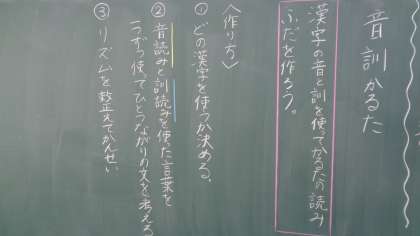 音訓かるた
漢字の音と訓を使ってかるたの読み
ふだを作ろう。
〈作り方〉
①どの漢字を使うか決める。
②音読みと訓読みを使った言葉を
一つずつ使ってひとつながりの文を考える
③リズムを整えてかんせい。